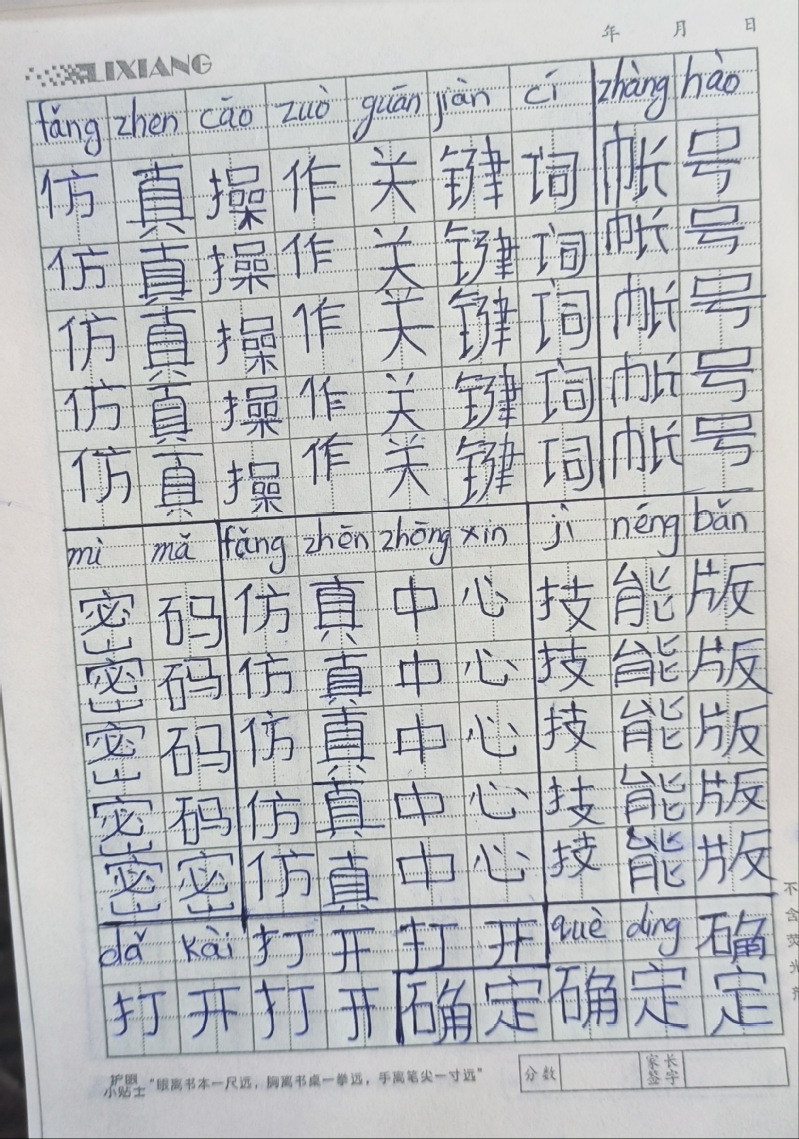 年 月 日
LIXIANG
fǎng zhen cāo zuò guān jiàn cí zhàng hào
仿 真 操 作 关 键 词 帐 号
仿 真 操 作 关 键 词 帐 号
仿 真 操 作 关 键 词 帐 号
仿 真 操 作 关 键 词 帐 号
仿 真 操 作 关 键 词 帐 号
mì mǎ fǎng zhēn zhōng xin jì néng bǎn
密 码 仿 真 中 心 技 能 版
密 码 仿 真 中 心 技 能 版
密 码 仿 真 中 心 技 能 版
密 码 仿 真 中 心 技 能 版
密 密 仿 真 中 心 技 能 版
dǎ kài 打 开 打 开 què ding 确
打 开 打 开 确 定 确 定 定
护眼小贴士 "眼离书本一尺远，胸离书桌一拳远，手离笔尖一寸远"
分数 家长签字
不含荧光剂